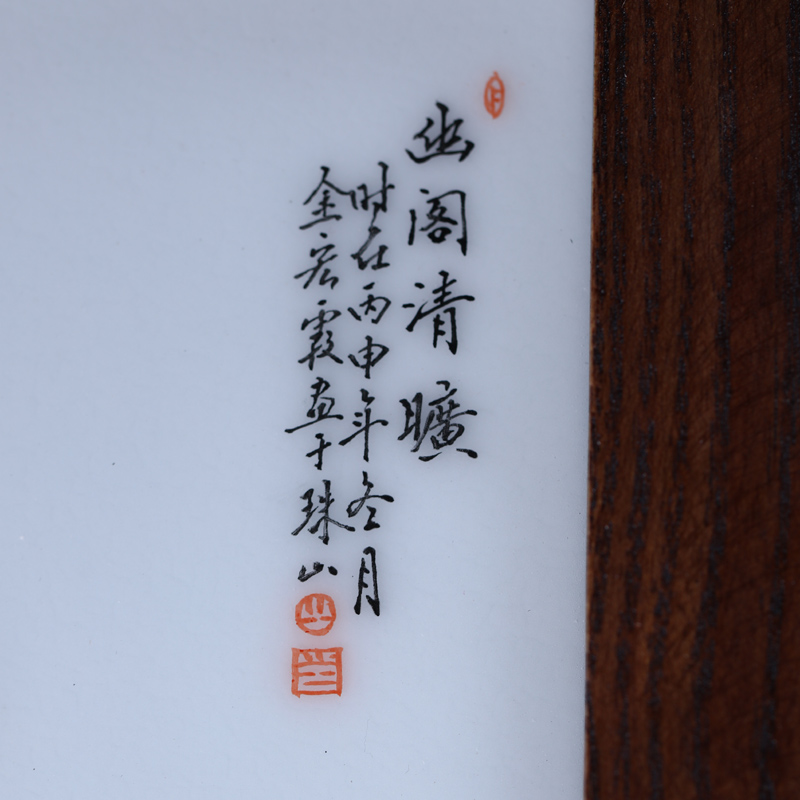 幽阁清曠
时在丙申年冬月
金宏霞画于珠山